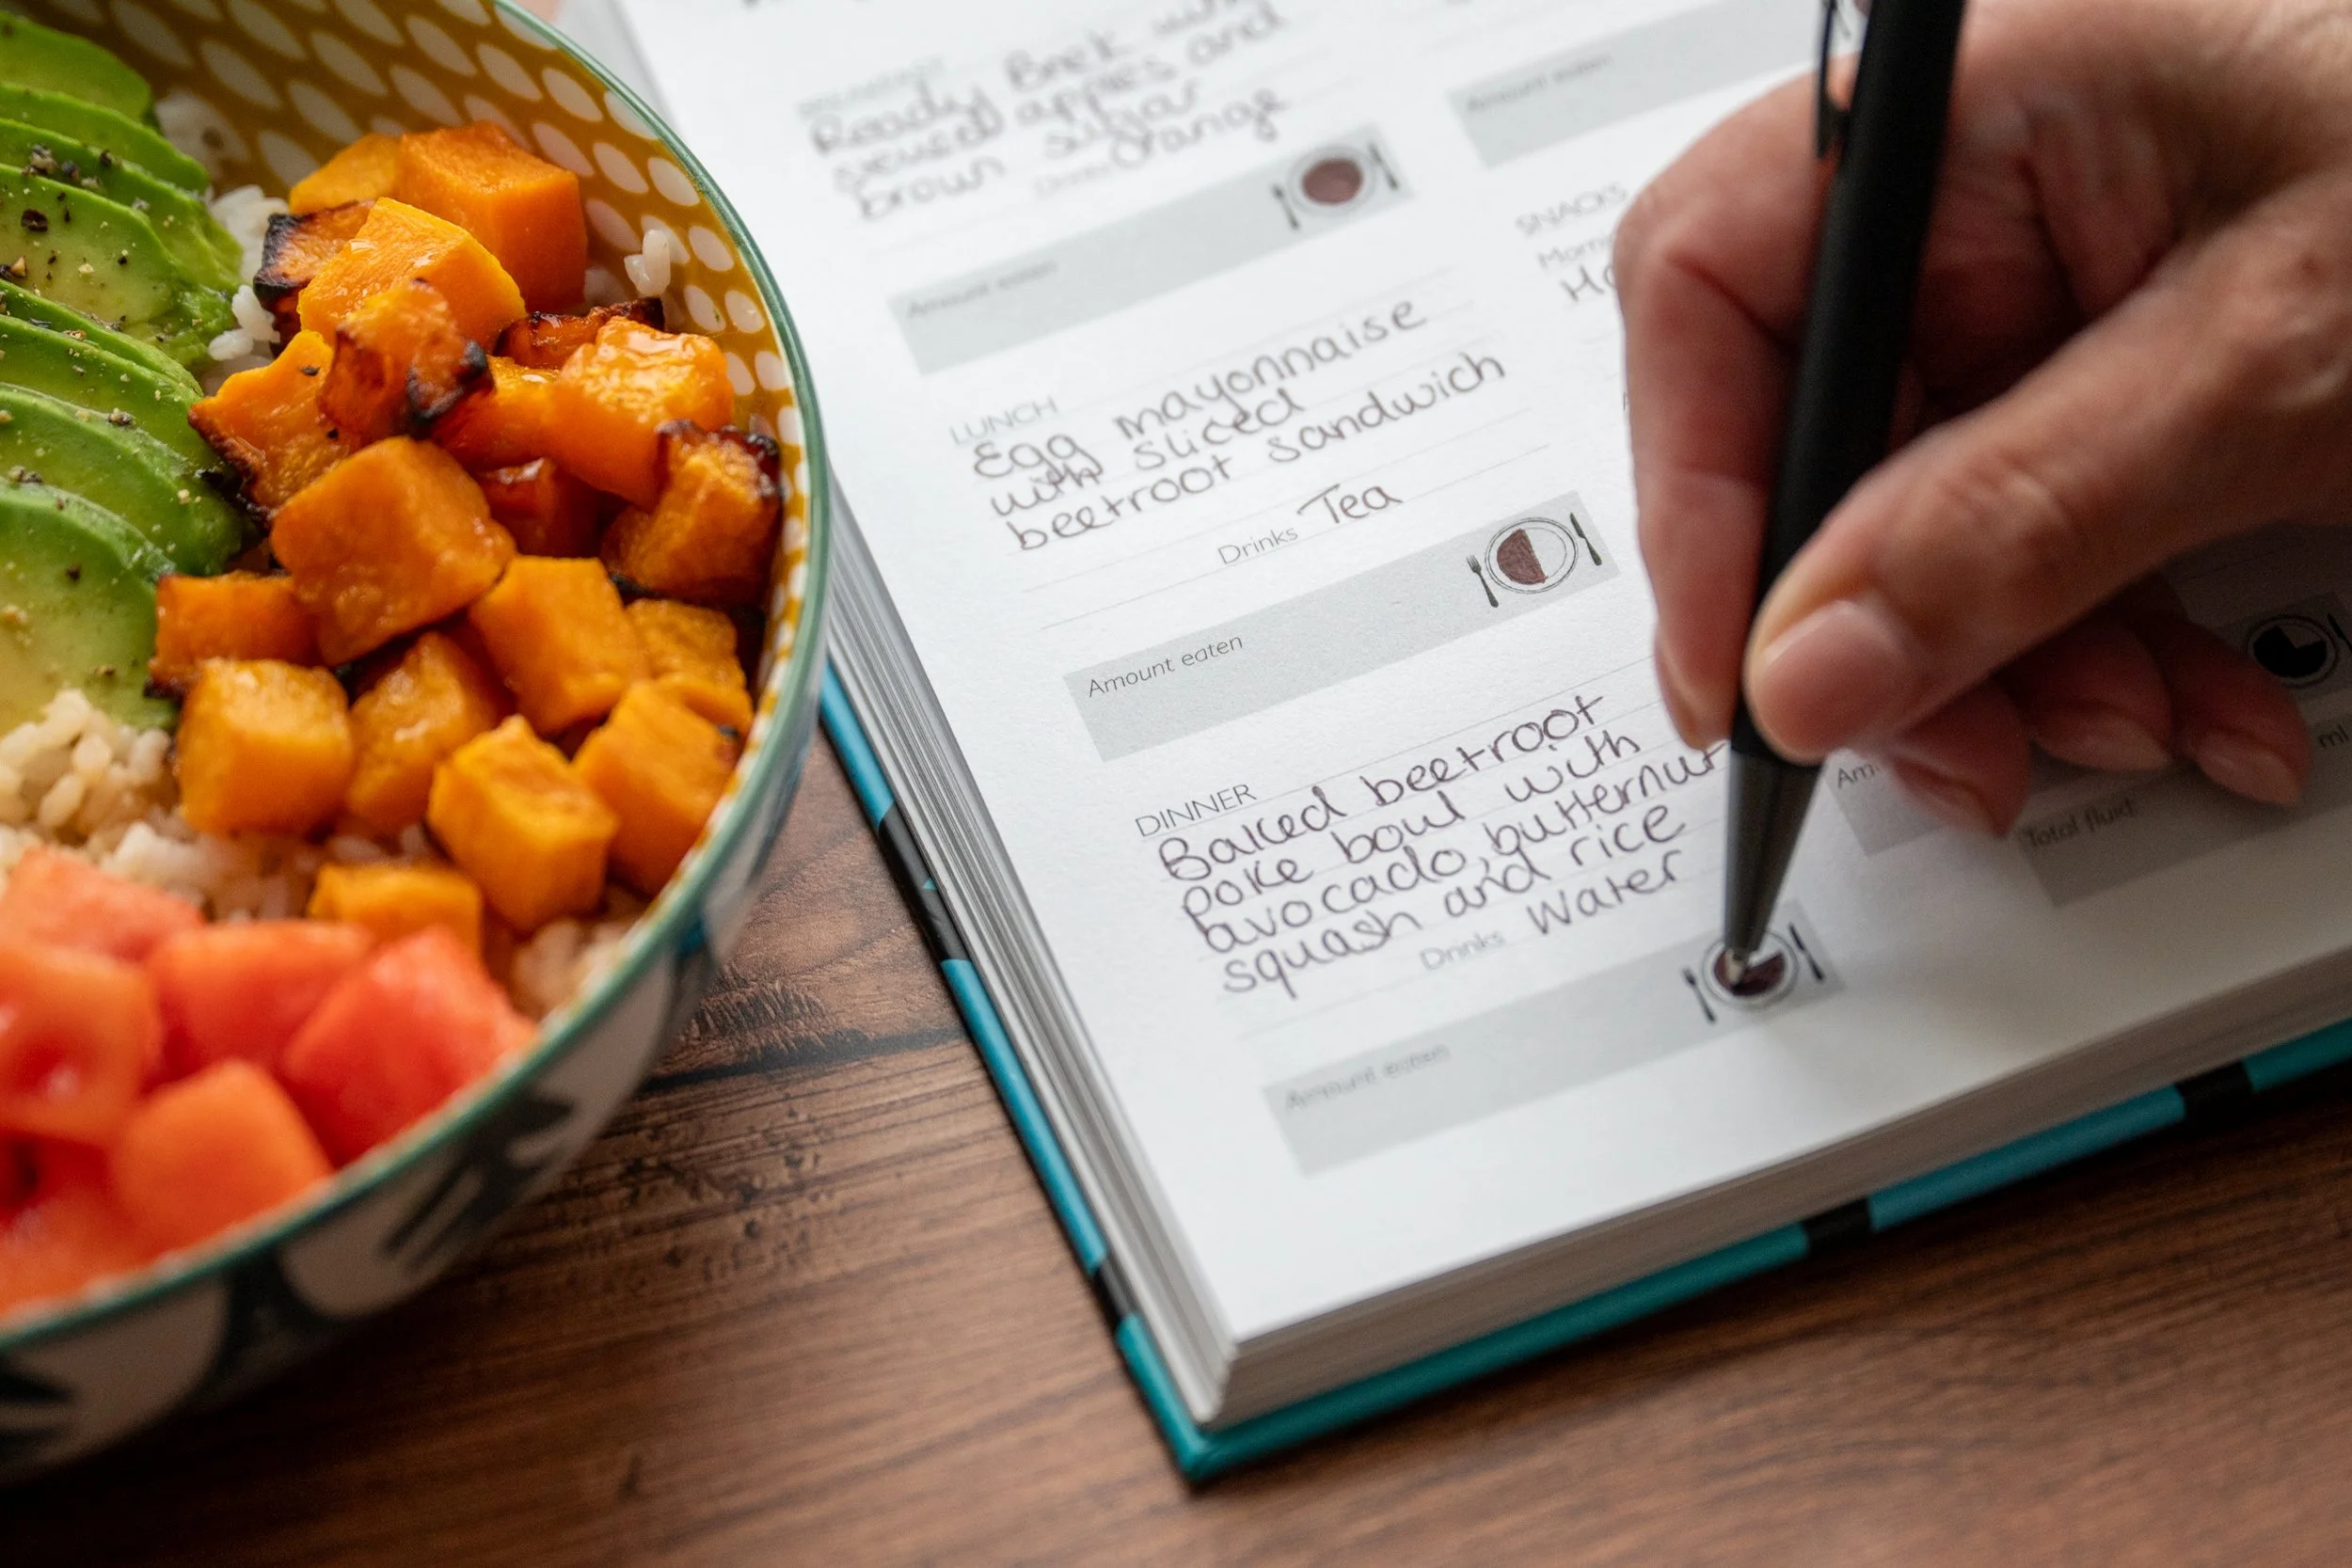 BREAKFAST
Ready Brek with
stewed apples and
brown sugar
Drinks Orange
Amount eaten
LUNCH
Egg mayonnaise
with sliced
beetroot sandwich
Drinks Tea
Amount eaten
DINNER
Baked beetroot
poke bowl with
avocado, butternut
squash and rice
Drinks Water
Amount eaten
Amount eaten
SNACKS
ml
Total fluid: